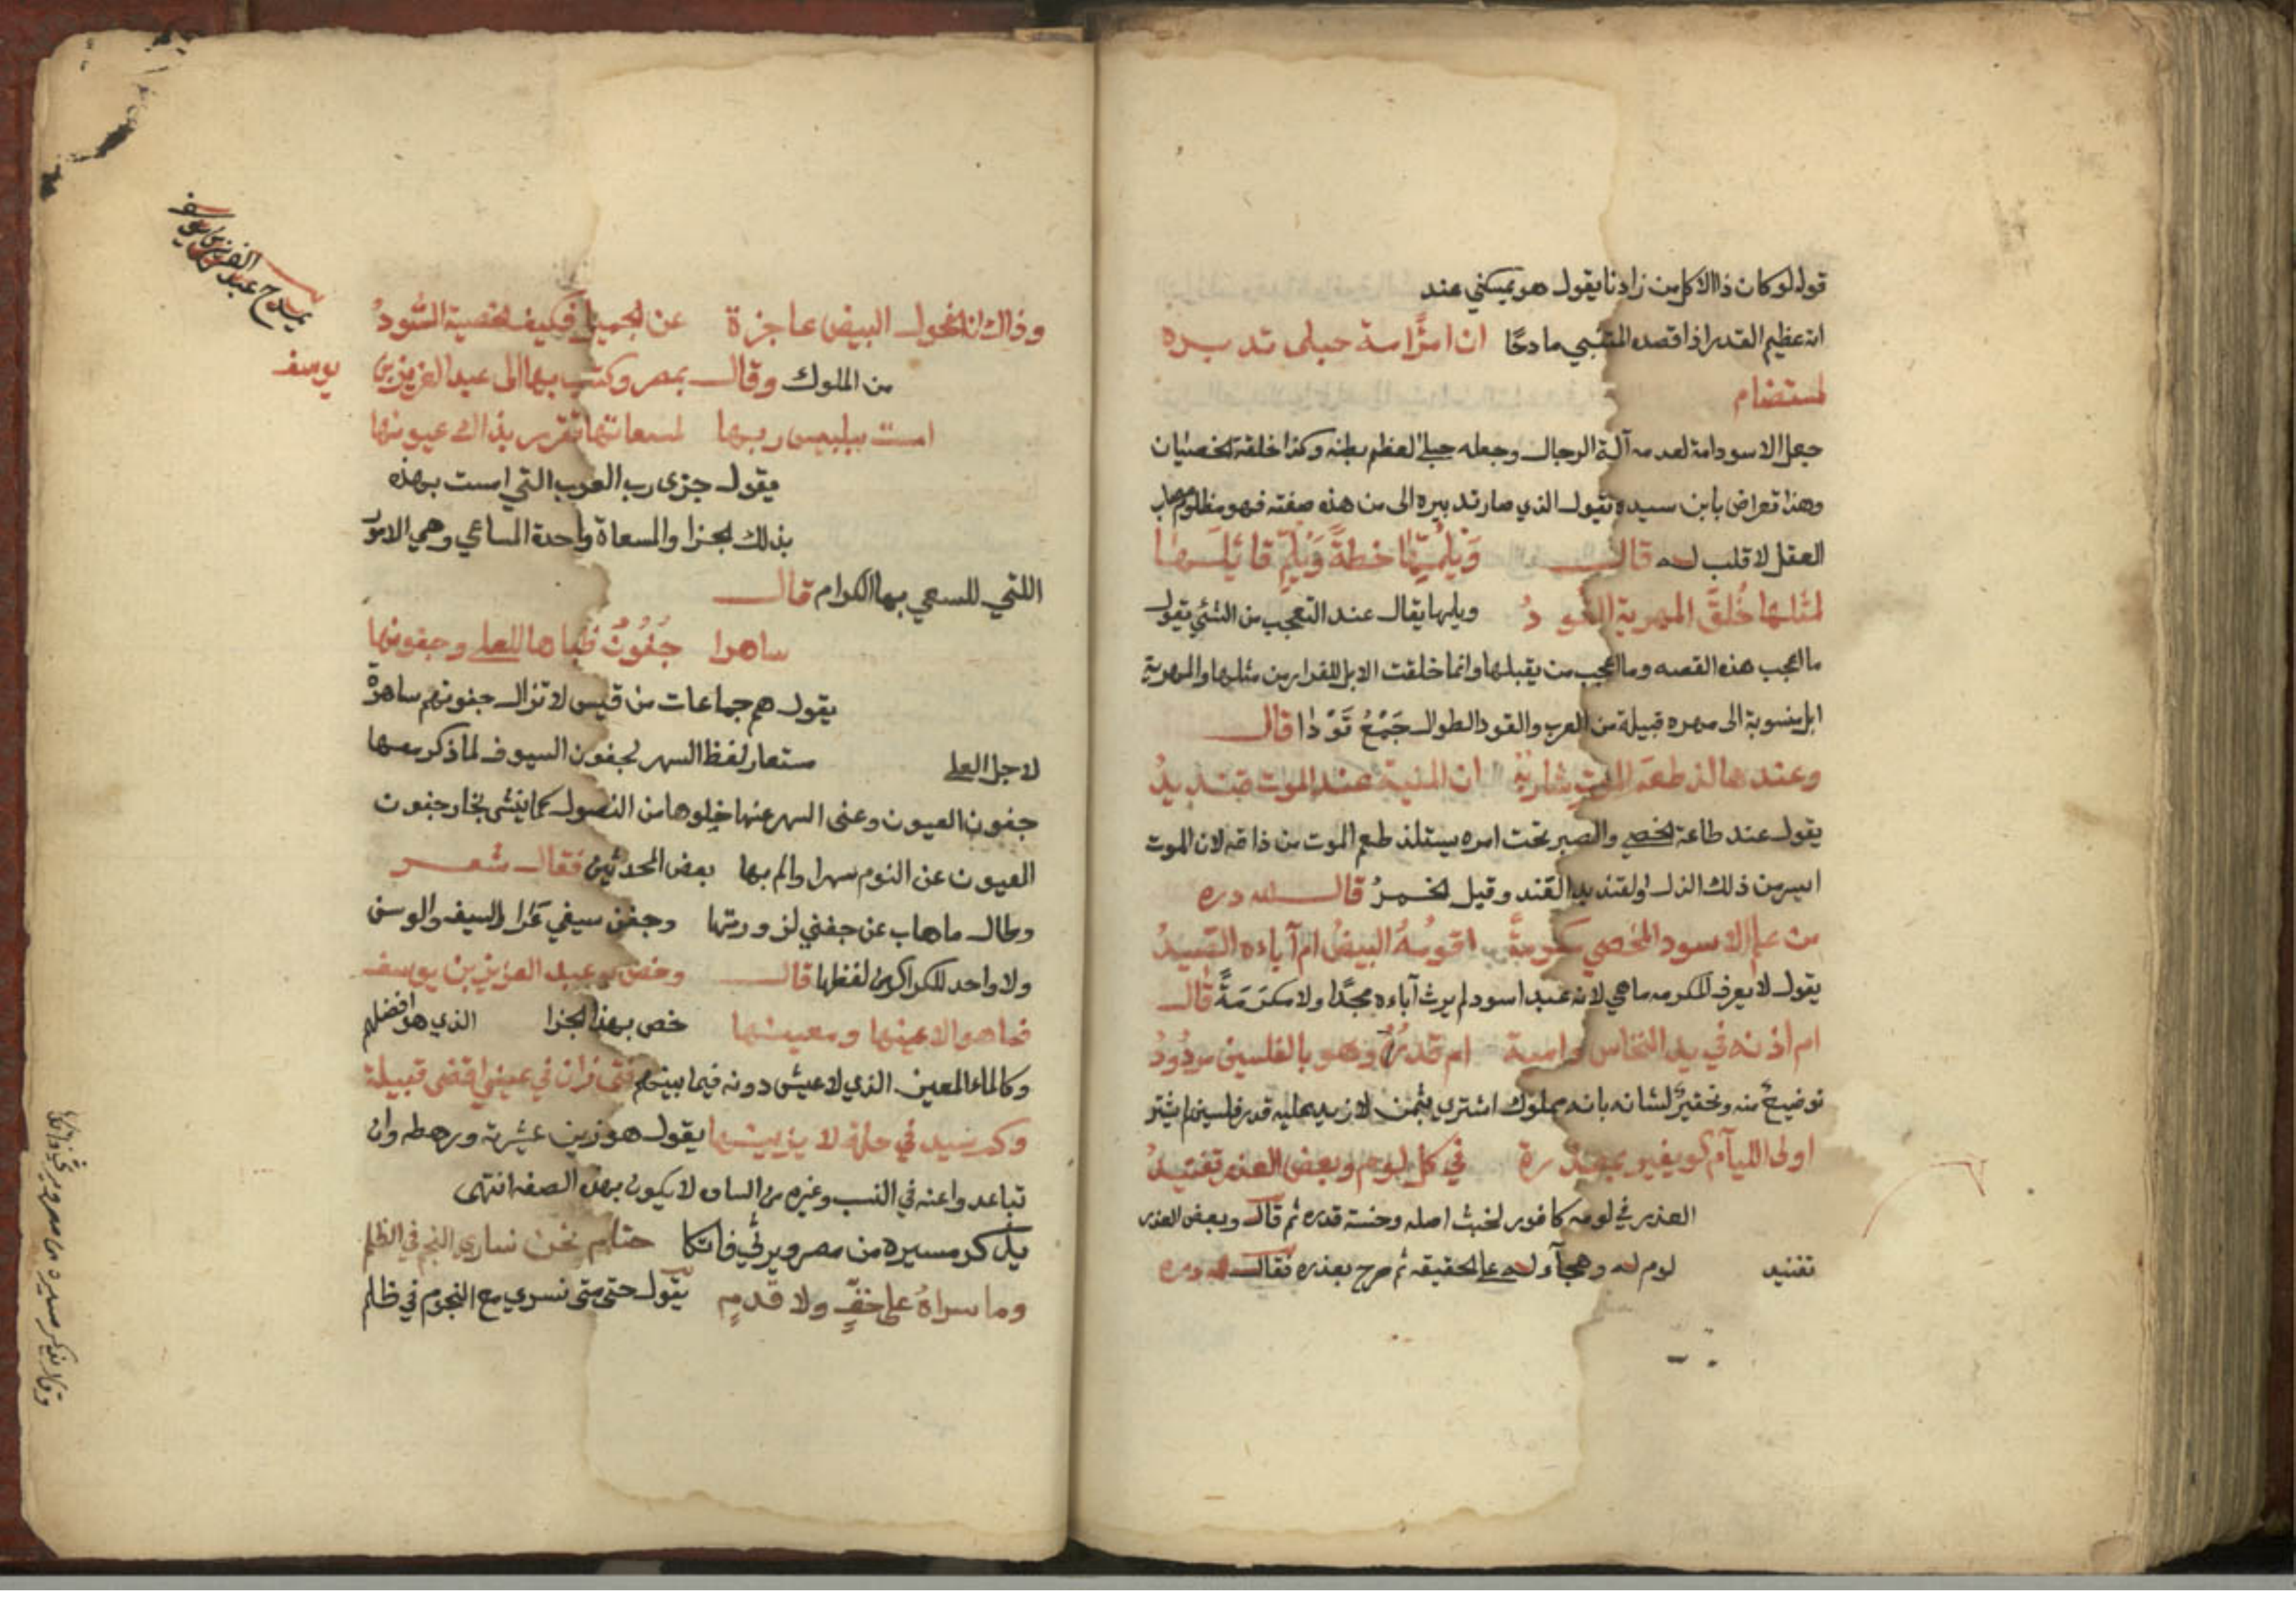 قوله لوكان ذا الاكل من زادنا يقول هو يمسكني عند
انه عظيم القدر اذا قصده المتنبي مادحًا ان امرًا امة حبلى تدبيره
لمستضام
جعل الاسود امة لعدمه آلة الرجال وجعله حبلى لعظم بطنه وكذا خلقة الخصيان
وهذا تعراض بابن سيده يقول الذي صار تدبيره الى من هذه صفته فهو مظلوم
العقل لا قلب له قال وَيلُمِّهَا خطةً وَيلِمّ قابلها
لمثلها خُلقَ المهرية القود ويلها يقال عند التعجب من الشئ يقول
ما اعجب هذه القصه وما اعجب من يقبلها وانما خلقت الابل للفرار من مثلها والمهرية
ابل منسوبة الى مهره قبيلة من العرب والقود الطوال جَمْعُ قَوْدَا قال
وعندها لذ طعمَ الموت شاربه ان المنية عند الموت قنديدُ
يقول عند طاعة الخصي والصبر تحت امره يستلذ طعم الموت من ذاقه لان الموت
ايسر من ذلك الذل والقنديد القند وقيل الخمرُ قال لله دره
من علم الاسود المخصي مكرمةً اقومُهُ البيضُ ام آباءه الصيدُ
يقول لا يعرف المكرمه ما هي لانه عبد اسود لم يرث آباءه مجدًا ولا مكرَمَةً قال
ام اذنه في يد النخاس دامية ام قدرُهُ وهو بالفلسين مردُودُ
توضيعٌ منه وتحقيرٌ لشانه بانه مملوك اشتري بثمن لازيد عليه قدر فلسين لم يشتر
اولى الليآم كويفير بمعذرة في كل لوم وبعض العذر تفنيدُ
العذر في لومه كافور لخبث اصله وخسته قدره ثم قال وبعض العذر
تفنيد لوم له وهجآء له على الحقيقه ثم صرح بعذره فقال لله دره
وذاك ان الفحول البيض عاجزة عن الجميل فكيف الخصية السُّودُ
من الملوك وقال بمصر وكتب بها الى عبد العزيز بن يوسف
امست ببلبيس ربها لمسعاتها تقرر بذاك عيونها
يقول جزى رب العرب التي امست بهذه
بذلك الجزا والمسعاة واحدة المساعي وهي الامور
اللتي للسعي بها الكرام قال
ساهرا جُفُونُ ظباها للعلى وجفونها
يقول هم جماعات من قيس لا تزال جفونهم ساهرة
لاجل العلى ستعار لفظ السهر لجفون السيوف لما ذكر معها
جفون العيون وعنى السهر عنها خلوها من النصول كما ينشى بخار جفون
العيون عن النوم سهرا والم بها بعض المحدثين فقال شعر
وطال ماهاب عن جفني لزورتها وجفن سيفي غرار السيف والوسن
ولا واحد للكراكرمن لفظها قال وخص به عبد العزيز بن يوسف
فما هو الا عينها ومعينها خص بهذا الجزا الذي هو افضلهم
وكالماء المعين الذي لا عيش دونه فيما بينهم فتى زان في عيني اقضى قبيلة
وكم سيد في حلة لا يزينها يقول هو زين عشرته ورهطه وان
تباعدوا عنه في النسب وغيره من السان لا يكون بهذه الصفه انتهى
يذكر مسيره من مصر ويرثي فاتكا حتام نحن نساري النجم في الظلم
وما سراهُ على خفٍّ ولا قدمٍ يقول حتى متى نسري مع النجوم في ظلم
يمدح عبد العزيز بن يوسف
وقال يذكر مسيره من مصر ويرثي فاتكا